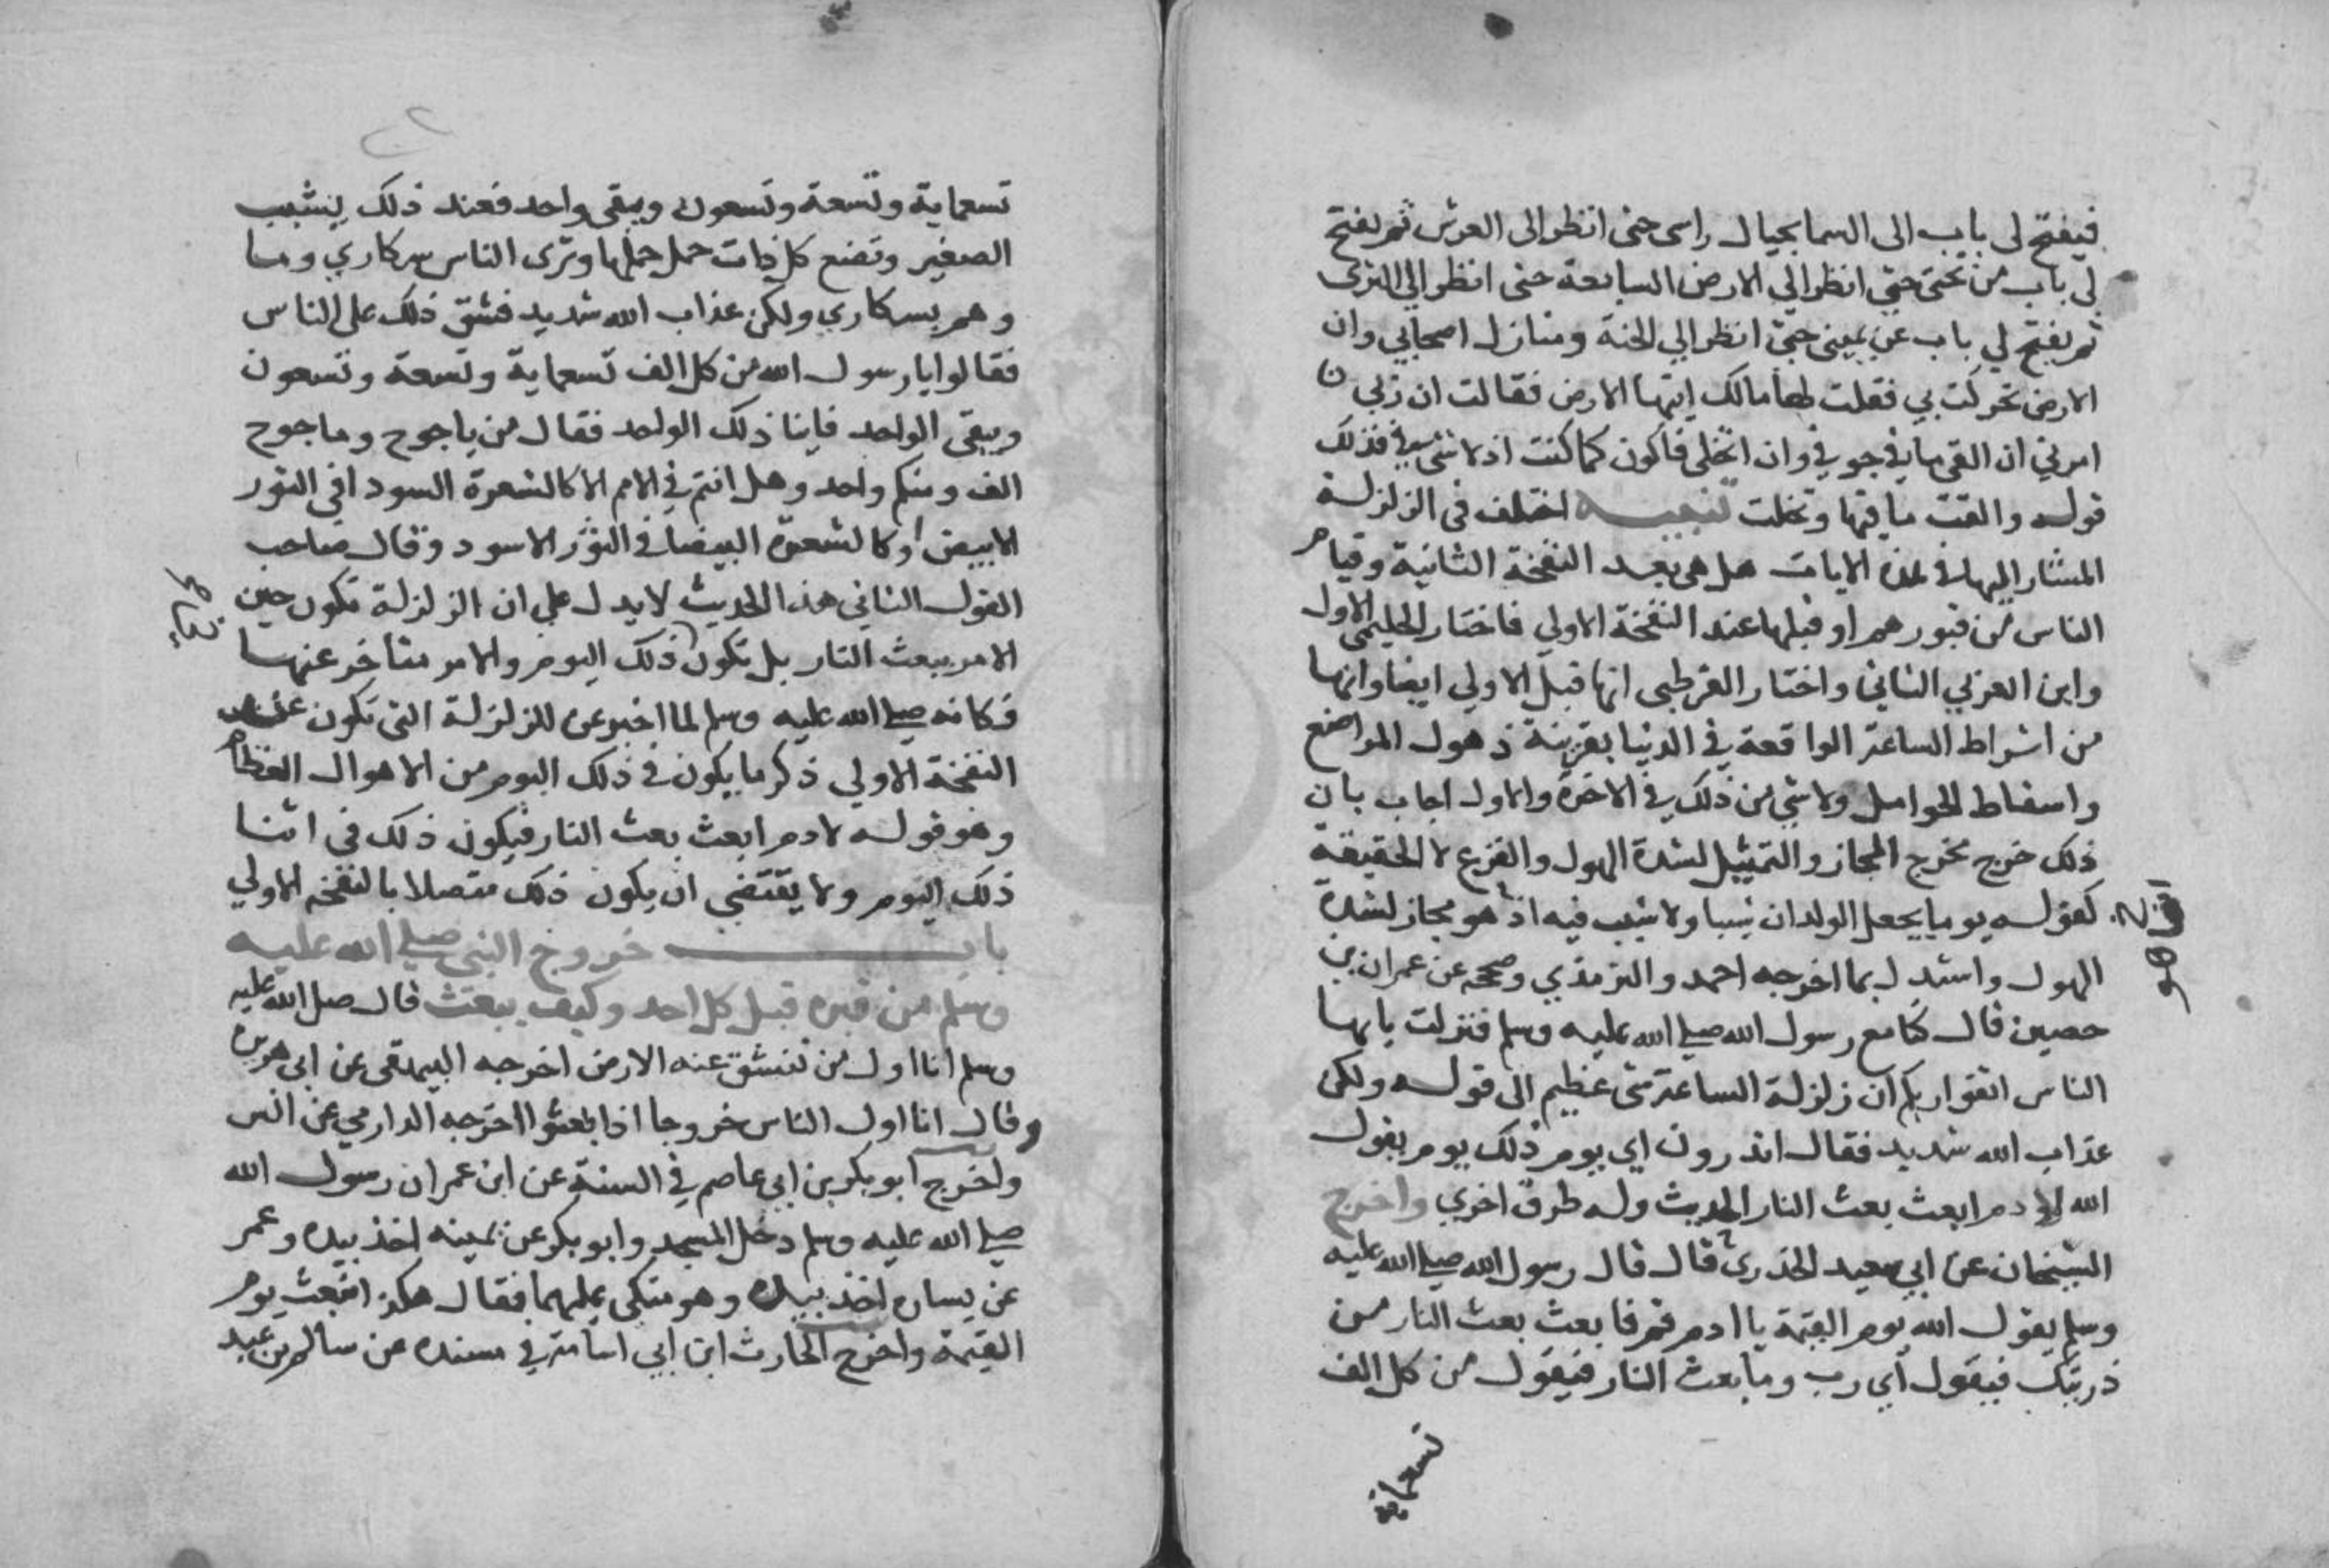 فيفتح لي باب الى السما بحيال راسى حتى انظر الى العرش ثم يفتح
لي باب من تحتى حتي انظر الي الارض السابعة حتى انظر الي الثرى
ثم يفتح لي باب عن يميني حتي انظر الي الجنة ومنازل اصحابي وان
الارض تحركت بي فقلت لها مالك ايتها الارض فقالت ان ربي
امرني ان القي ما في جوفي وان اتخلى فاكون كما كنت اذ لا شي في فذلك
قوله والقت ما فيها وتخلت تنبيه اختلف في الزلزلة
المشار اليها في هذه الايات هل هي بعد النفخة الثانية وقيام
الناس من قبورهم او قبلها عند النفخة الاولي فاختار الحليمي الاول
وابن العربي الثاني واختار القرطبى انها قبل الاولي ايضا وانها
من اشراط الساعة الواقعة في الدنيا بقرينة ذهول المراضع
واسقاط الحوامل ولا شي من ذلك في الاخرة والاول اجاب بان
ذلك خرج مخرج المجاز والتمثيل لشدة الهول والفزع لا الحقيقة
كقوله يوما يجعل الولدان شيبا ولا شيب فيه اذ هو مجاز لشدة
الهول واستدل بما اخرجه احمد والترمذي وصححه عن عمران بن
حصين قال كنا مع رسول الله صلي الله عليه وسلم فنزلت يايها
الناس اتقوا ربكم ان زلزلة الساعة شي عظيم الى قوله ولكن
عذاب الله شديد فقال اتدرون اي يوم ذلك يوم يقول
الله لادم ابعث بعث النار الحديث وله طرق اخري واخرج
الشيخان عن ابي سعيد الخدري قال قال رسول الله صلي الله عليه
وسلم يقول الله يوم القيمة يا ادم قم فابعث بعث النار من
ذريتك فيقول اي رب وما بعث النار فيقول من كل الف
تسعماية
تسعماية وتسعة وتسعون ويبقى واحد فعند ذلك يشيب
الصغير وتضع كل ذات حمل حملها وترى الناس سكاري وما
وهم بسكاري ولكن عذاب الله شديد فشق ذلك على الناس
فقالوا يا رسول الله من كل الف تسعماية وتسعة وتسعون
ويبقي الواحد فاينا ذلك الواحد فقال من ياجوج وماجوج
الف ومنكم واحد وهل انتم في الامم الا كالشعرة السودا في الثور
الابيض او كالشعرة البيضا في الثور الاسود وقال صاحب
القول الثاني هذا الحديث لا يدل علي ان الزلزلة تكون حين
الامر ببعث النار بل تكون ذلك اليوم والامر متاخر عنها
فكانه صلي الله عليه وسلم لما اخبر عن الزلزلة التى تكون عند
النفخة الاولي ذكر ما يكون في ذلك اليوم من الاهوال العظام
وهو قوله لادم ابعث بعث النار فيكون ذلك في اثنا
ذلك اليوم ولا يقتضي ان يكون ذلك متصلا بالنفخة الاولي
باب خروج النبي صلي الله عليه
وسلم من قبره قبل كل احد وكيف يبعث قال صلى الله عليه
وسلم انا اول من تنشق عنه الارض اخرجه البيهقى عن ابى هريرة
وقال انا اول الناس خروجا اذا بعثوا اخرجه الدارمي عن انس
واخرج ابو بكر بن ابي عاصم في السنة عن ابن عمر ان رسول الله
صلي الله عليه وسلم دخل المسجد وابو بكر عن يمينه اخذ بيده وعمر
عن يساره اخذ بيده وهو متكى عليهما فقال هكذا نبعث يوم
القيمة واخرج الحارث ابن ابي اسامة في مسنده عن سالم بن عبد